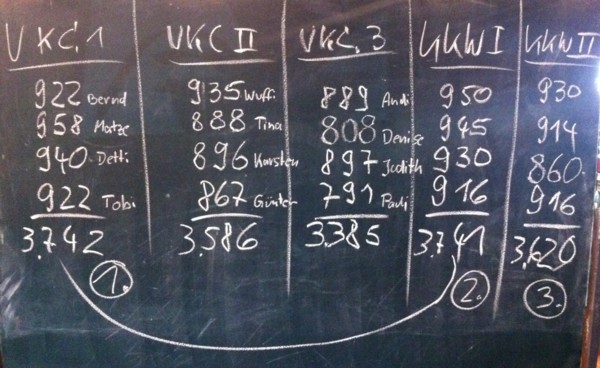 VKC.1 VKC II VKC.3 GKW I GKW II
922 Bernd 935 Wuffi 889 Andi 950 930
958 Matze 888 Tina 808 Denise 945 914
940 Detti 896 Karsten 897 Judith 930 860
922 Tobi 867 Günter 791 Pauli 916 916
3.742 3.586 3.385 3.741 3.620
1. 2. 3.